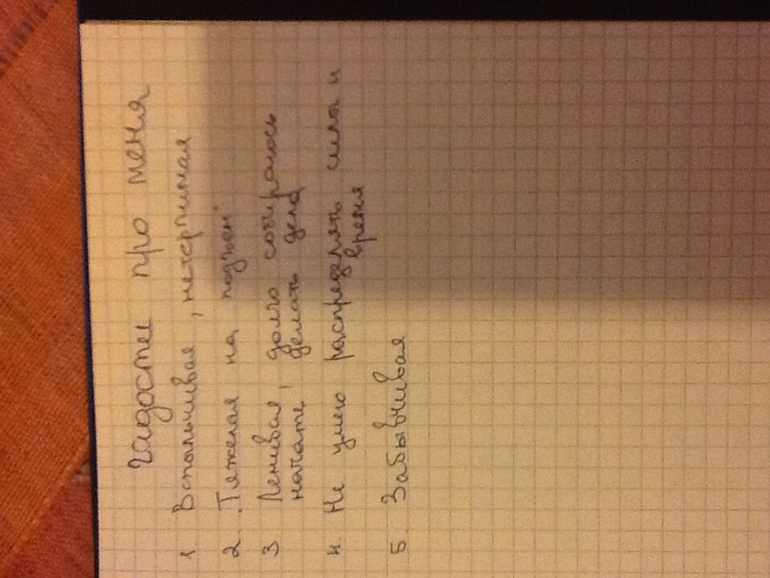 гадости про меня
1. Вспыльчивая, нетерпимая
2. Тяжелая на подъем
3 Ленивая, долго собираюсь
начать делать дела
4. Не умею распределять силы и
время
5. Забывчивая